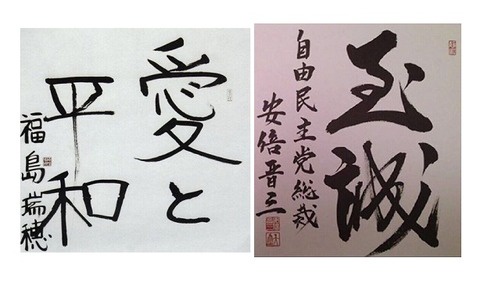 愛と
平和
福島瑞穂
至誠
自由民主党総裁
安倍晋三